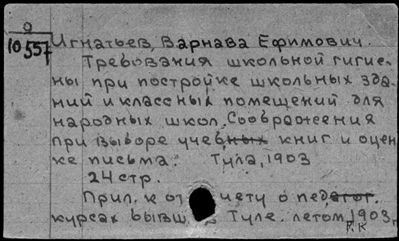 9
10557
Игнатьев, Варнава Ефимович.
Требования школьной гигие-
ны при постройке школьных зда-
ний и классных помещений для
народных школ. Соображения
при выборе учебных книг и оцен
ке письма. Тула, 1903
24 стр.
Прил. к от чету о педагог.
курсах бывш. в Туле. летом, 1903 г.
Р.К